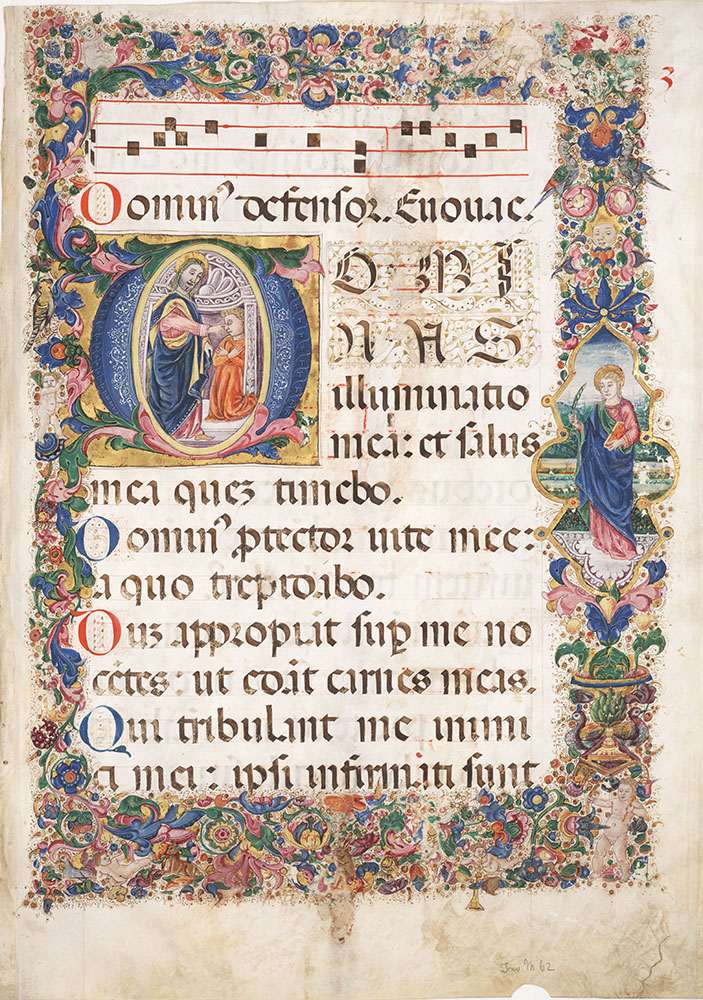 3
Dominꝰ defensor. Euouae.
DOMI
NAS
illuminatio
mea: et salus
mea quez timebo.
Dominꝰ ꝓtector uite mee:
a quo trepidabo.
Duz appropiāt suꝑ me no
cētes: ut edāt carnes meas.
Qui tribulant me inimi
ci mei: ipsi infirmati sunt
M 62